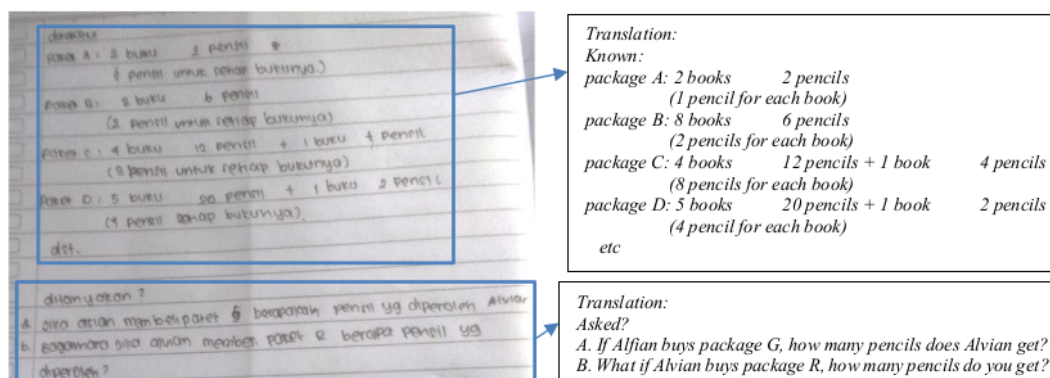 diketahui
Paket A : 2 buku 2 pensil
(1 pensil untuk setiap bukunya)
Paket B : 3 buku 6 pensil
(2 pensil untuk setiap bukunya)
Paket C : 4 buku 12 pensil + 1 buku 4 pensil
(3 pensil untuk setiap bukunya)
Paket D : 5 buku 20 pensil + 1 buku 2 pensil
(4 pensil setiap bukunya)
dst.
ditanyakan ?
a jika membeli paket pensil yg diperoleh Alvian
b. Bagaimana jika alvian paket R berapa pensil yg
diperoleh ?
Translation:
Known:
package A: 2 books 2 pencils
(1 pencil for each book)
package B: 8 books 6 pencils
(2 pencils for each book)
package C: 4 books 12 pencils + 1 book 4 pencils
(8 pencils for each book)
package D: 5 books 20 pencils + 1 book 2 pencils
(4 pencil for each book)
etc
Translation:
Asked?
A. If Alfian buys package G, how many pencils does Alvian get?
B. What if Alvian buys package R, how many pencils do you get?